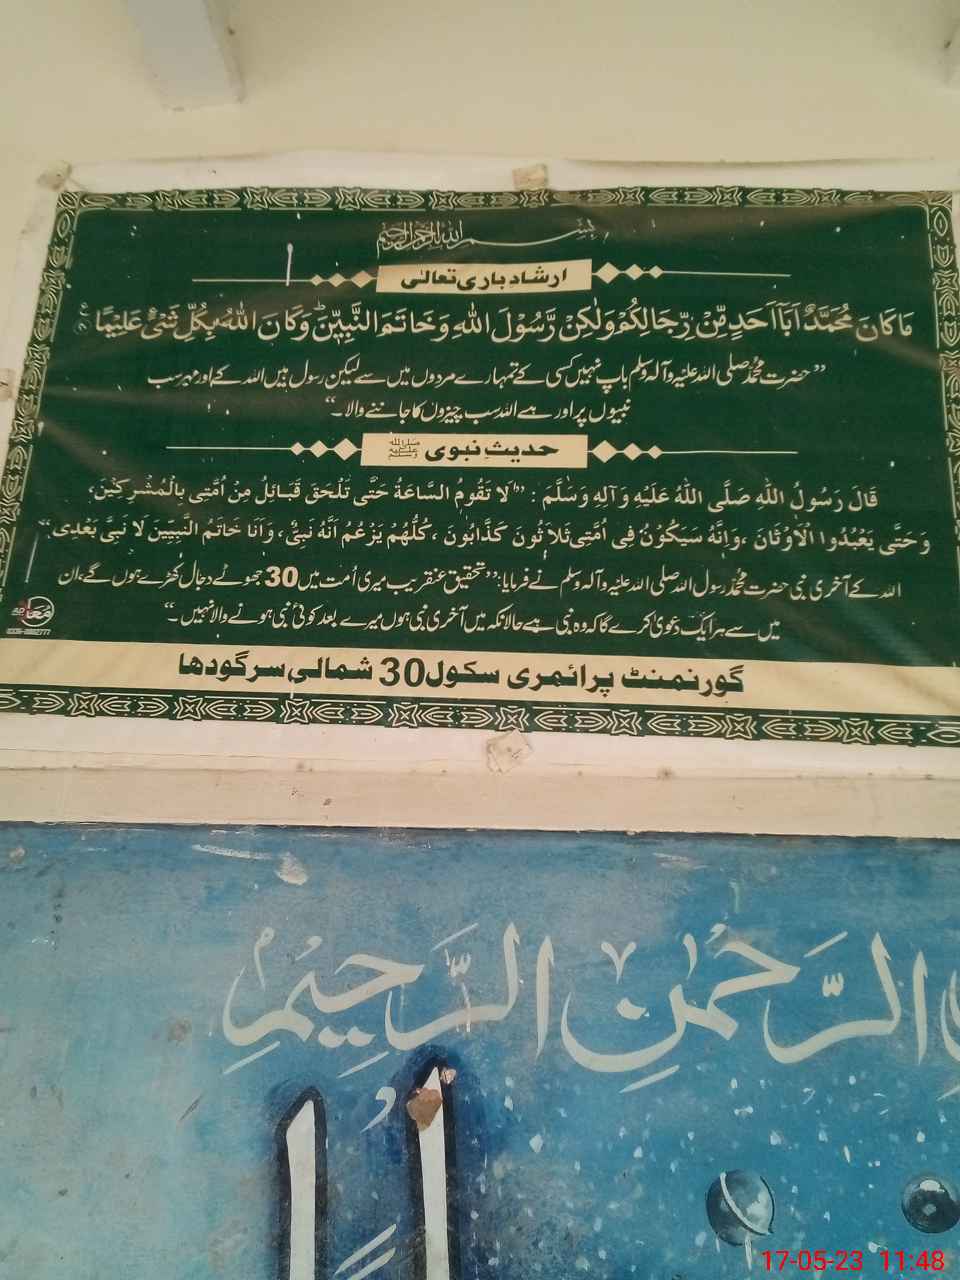 بِسْمِ اللهِ الرَّحْمٰنِ الرَّحِيْمِ
ارشادِ باری تعالٰی
مَا كَانَ مُحَمَّدٌ اَبَآ اَحَدٍ مِّنْ رِّجَالِكُمْ وَلٰكِنْ رَّسُوْلَ اللهِ وَخَاتَمَ النَّبِيّٖنَ ؕ وَكَانَ اللهُ بِكُلِّ شَیْءٍ عَلِيْمًا
”حضرت محمد صلی اللہ علیہ وآلہ وسلم باپ نہیں کسی کے تمہارے مردوں میں سے لیکن رسول ہیں اللہ کے اور مہر سب
نبیوں پر اور ہے اللہ سب چیزوں کا جاننے والا۔“
حدیثِ نبوی ﷺ
قَالَ رَسُولُ اللهِ صَلَّی اللهُ عَلَيْهِ وَآلِهٖ وَسَلَّمَ : ”لَا تَقُومُ السَّاعَةُ حَتَّی تَلْحَقَ قَبَائِلُ مِنْ اُمَّتِی بِالْمُشْرِكِيْنَ،
وَحَتَّی يَعْبُدُوا الْاَوْثَانَ ،وَاِنَّهُ سَيَكُوْنُ فِی اُمَّتِی ثَلَاثُونَ كَذَّابُونَ ، كُلُّهُمْ يَزْعُمُ اَنَّهُ نَبِیٌّ، وَاَنَا خَاتَمُ النَّبِيِّيْنَ لَا نَبِیَّ بَعْدِی“
اللہ کے آخری نبی حضرت محمد رسول اللہ صلی اللہ علیہ وآلہ وسلم نے فرمایا: ”تحقیق عنقریب میری اُمت میں 30 جھوٹے دجال کھڑے ہوں گے، ان
میں سے ہر ایک دعویٰ کرے گا کہ وہ نبی ہے حالانکہ میں آخری نبی ہوں میرے بعد کوئی نبی ہونے والا نہیں۔“
گورنمنٹ پرائمری سکول 30 شمالی سرگودھا
الرَّحْمٰنِ الرَّحِيْمِ
17-05-23 11:48